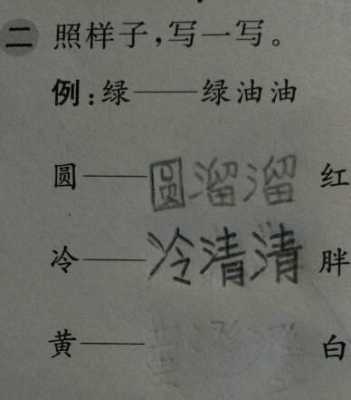 二 照样子,写一写。
例:绿——绿油油
圆——圆溜溜 红
冷——冷清清 胖
黄—— 白